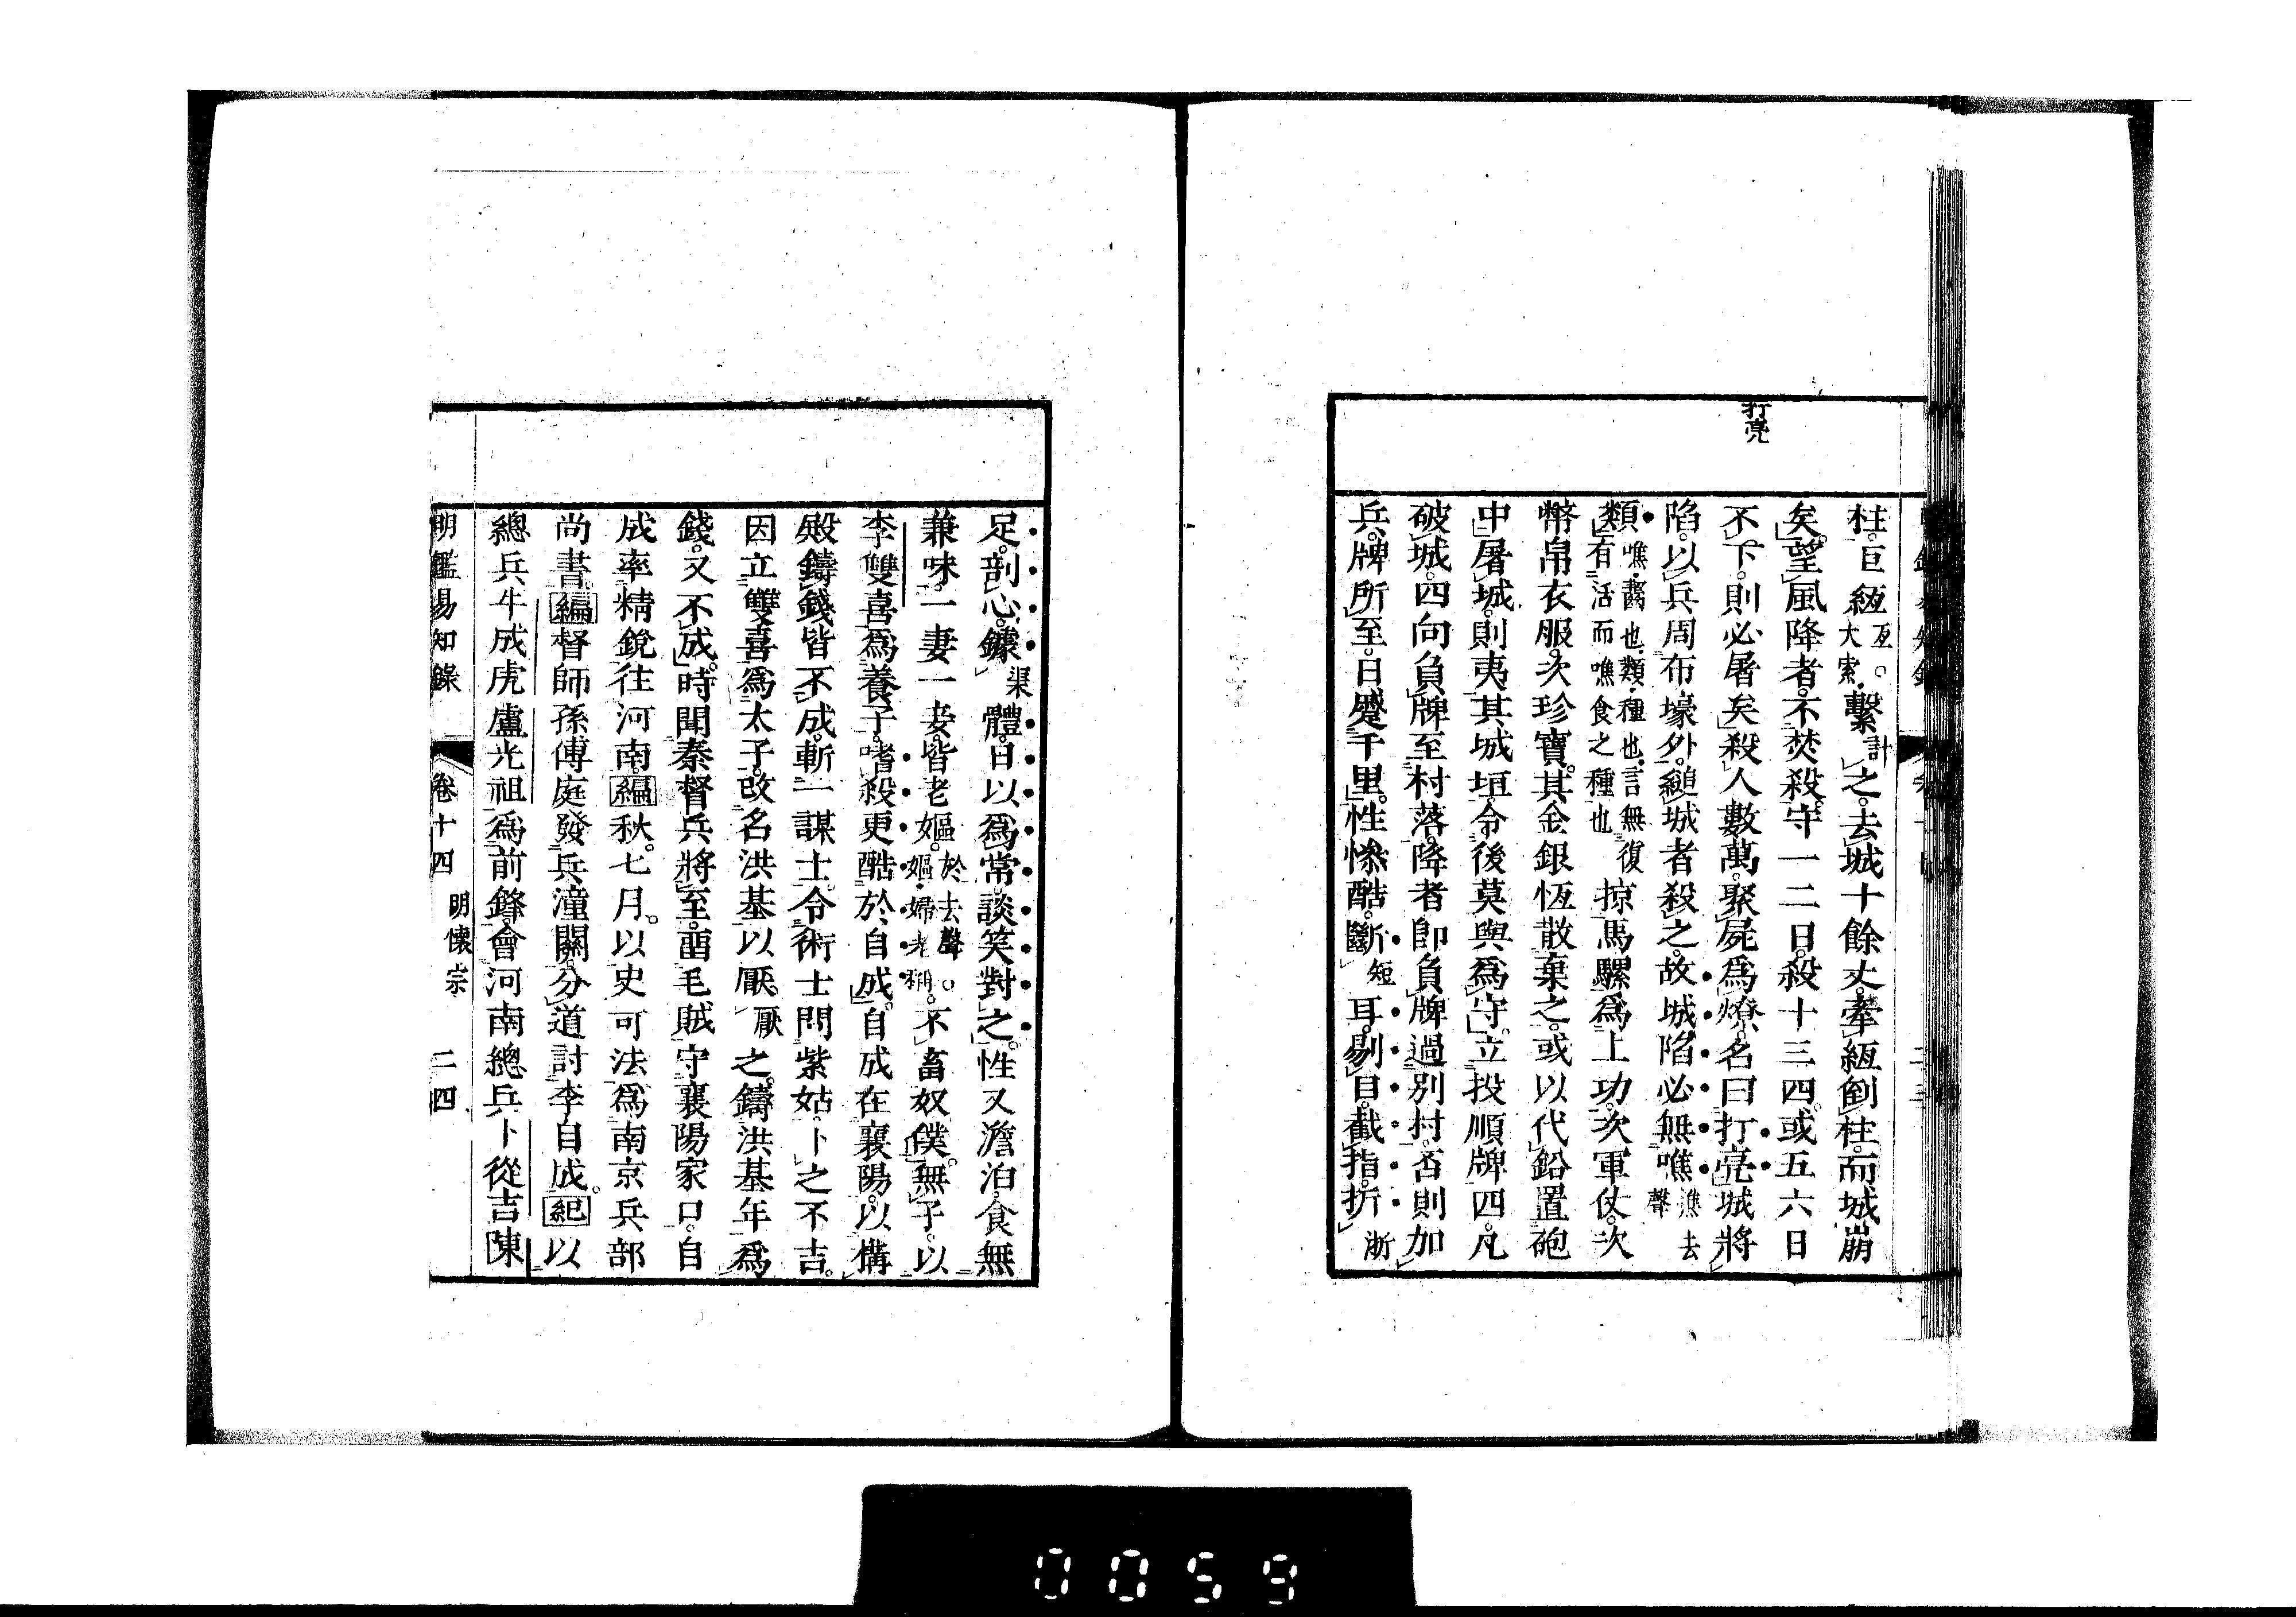 打亮
柱。巨絙亙。大索。繫計之。去城十餘丈。牽絙倒柱。而城崩
矣。望風降者。不焚殺。守一二日。殺十三四。或五六日
不下。則必屠矣。殺人數萬。聚屍爲燎。名曰打亮。城將
陷。以兵周布壕外。縋城者殺之。故城陷必無噍譙去聲
類。噍。齧也。類。種也。言無復有活而噍食之種也掠馬騾爲上功。次軍仗。次
幣帛衣服。次珍寶。其金銀恆散棄之。或以代鉛置砲
中。屠城則夷其城垣。令後莫與爲守。立投順牌四。凡
破城。四向負牌至村落。降者卽負牌過別村。否則加
兵。牌所至。日蹙千里。性慘酷。斷短耳。剔目。截指。折浙
足。剖心。鑢渠體。日以爲常。談笑對之。性又澹泊。食無
兼味。一妻一妾。皆老嫗。於去聲。嫗。婦老稱。不畜奴僕。無子。以
李雙喜爲養子。嗜殺更酷於自成。自成在襄陽。以構
殿鑄錢皆不成。斬一謀士。令術士問紫姑。卜之不吉。
因立雙喜爲太子。改名洪基以厭。厭之。鑄洪基年爲
錢。又不成。時聞秦督兵將至。畱毛賊守襄陽家口。自
成率精銳往河南。編秋。七月。以史可法爲南京兵部
尚書。編督師孫傳庭發兵潼關。分道討李自成。紀以
總兵牛成虎盧光祖爲前鋒。會河南總兵卜從吉陳
明鑑易知錄 卷十四 明懷宗 二四